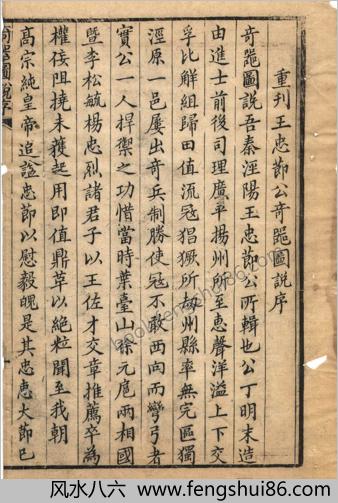 重刊王忠節公奇器圖說序
奇器圖說吾秦涇陽王忠節公所輯也公丁明末造
由進士前後司理廣平揚州所至惠聲洋溢上下交
孚比解組歸田值流寇猖獗所州縣率無完區獨
涇原一邑屢出奇兵制勝使寇不敢西向而彎弓者
實公一人捍禦之功惜當時葉臺山徐元扈兩相國
暨李松毓楊忠烈諸君子以王佐才交章推薦卒為
權侫阻撓未獲起用即值鼎革以絶粒聞至我朝
高宗純皇帝追諡忠節以慰毅魄是其忠大節已
风水八六 - fengshui86.com